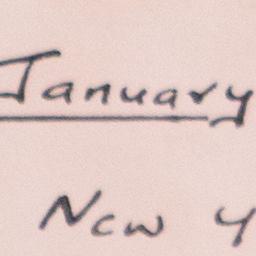 January
New Y